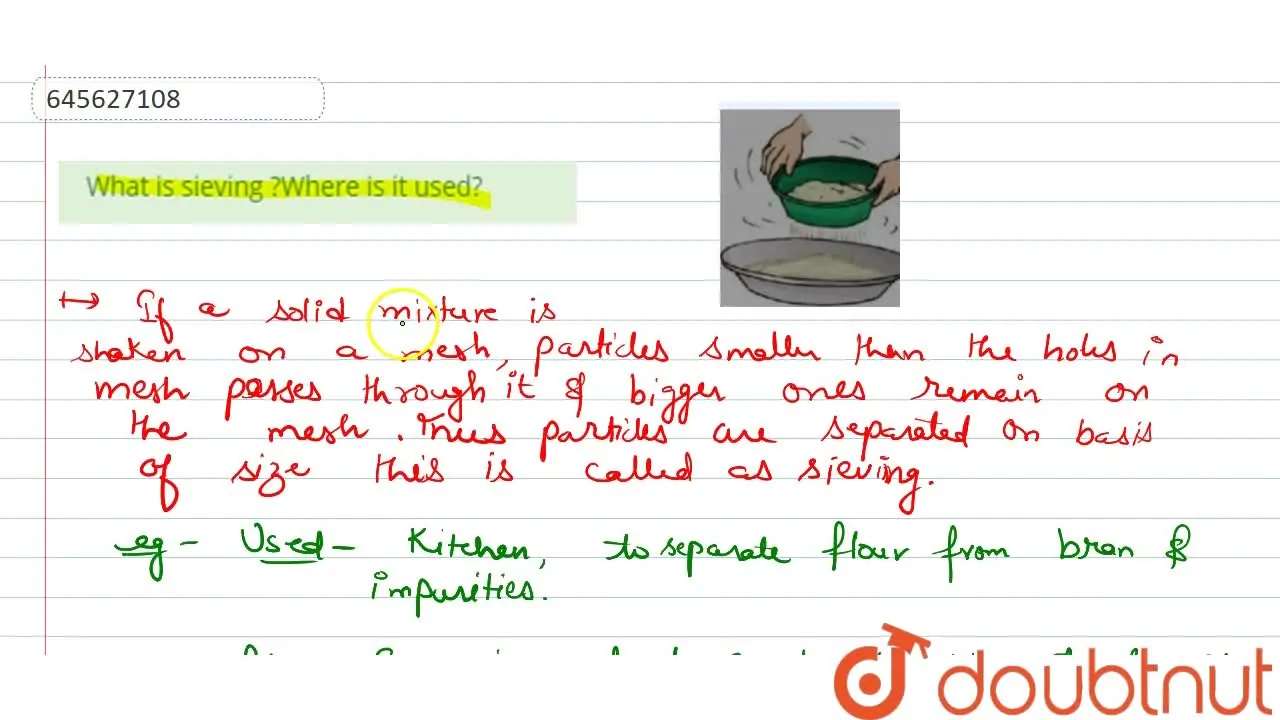 645627108
What is sieving ?Where is it used?
↦ If a solid mixture is
shaken on a mesh, particles smaller than the holes in
mesh passes through it & bigger ones remain on
the mesh. Thus particles are separated on basis
of size this is called as sieving.
eg - Used - Kitchen, to separate flour from bran &
impurities.
doubtnut